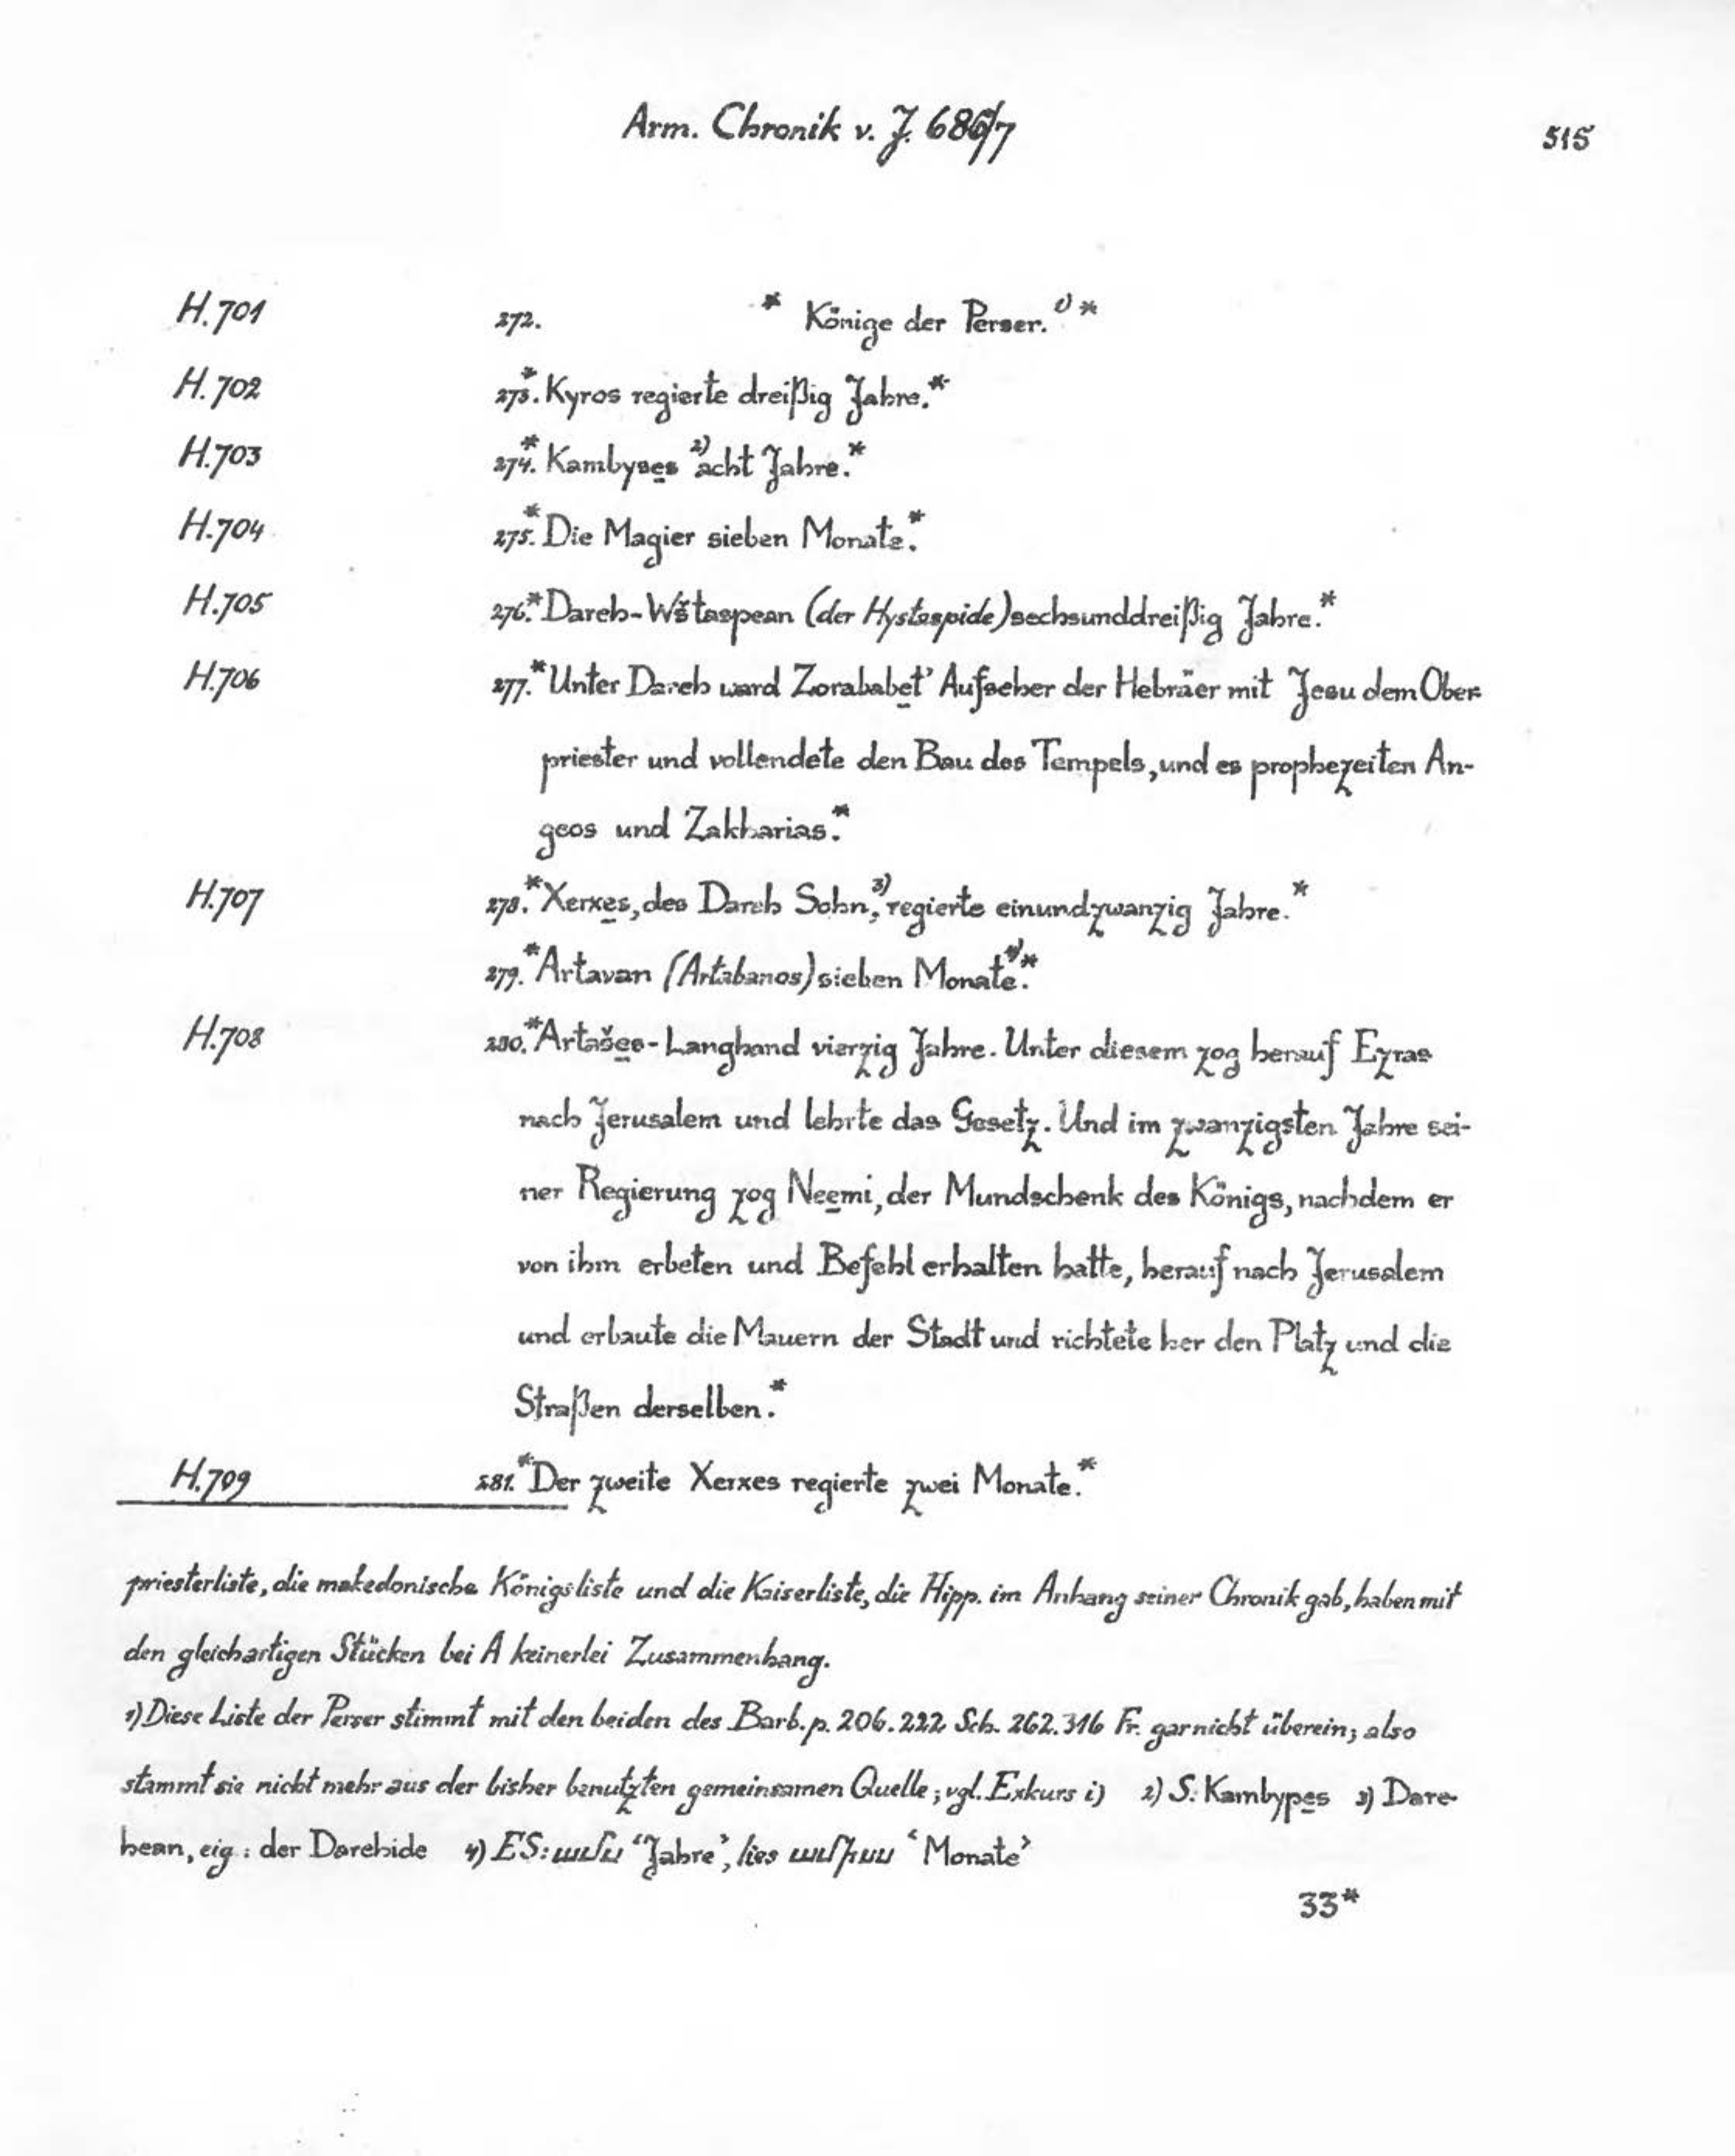 Arm. Chronik v. J. 686/7 515
H.701 272. * Könige der Perser. 1) *
H.702 273.* Kyros regierte dreißig Jahre.*
H.703 274.* Kambyses 2) acht Jahre.*
H.704 275.* Die Magier sieben Monate.*
H.705 276.* Dareh-Wštaspean (der Hystaspide) sechsunddreißig Jahre.*
H.706 277.* Unter Dareh ward Zorababeł Aufseher der Hebräer mit Jesu dem Ober-
priester und vollendete den Bau des Tempels, und es prophezeiten An-
geos und Zakharias.*
H.707 278.* Xerxes, des Dareh Sohn, 3) regierte einundzwanzig Jahre.*
279.* Artavan (Artabanos) sieben Monate. 4) *
H.708 280.* Artašes-Langhand vierzig Jahre. Unter diesem zog herauf Ezras
nach Jerusalem und lehrte das Gesetz. Und im zwanzigsten Jahre sei-
ner Regierung zog Neemi, der Mundschenk des Königs, nachdem er
von ihm erbeten und Befehl erhalten hatte, herauf nach Jerusalem
und erbaute die Mauern der Stadt und richtete her den Platz und die
Straßen derselben.*
H.709 281.* Der zweite Xerxes regierte zwei Monate.*
priesterliste, die makedonische Königsliste und die Kaiserliste, die Hipp. im Anhang seiner Chronik gab, haben mit
den gleichartigen Stücken bei A keinerlei Zusammenhang.
1) Diese Liste der Perser stimmt mit den beiden des Barb. p. 206. 222 Sch. 262. 316 Fr. garnicht überein; also
stammt sie nicht mehr aus der bisher benutzten gemeinsamen Quelle; vgl. Exkurs i) 2) S: Kambypes 3) Dare-
hean, eig.: der Darehide 4) ES: ամս 'Jahre', lies ամիսս 'Monate'
33*